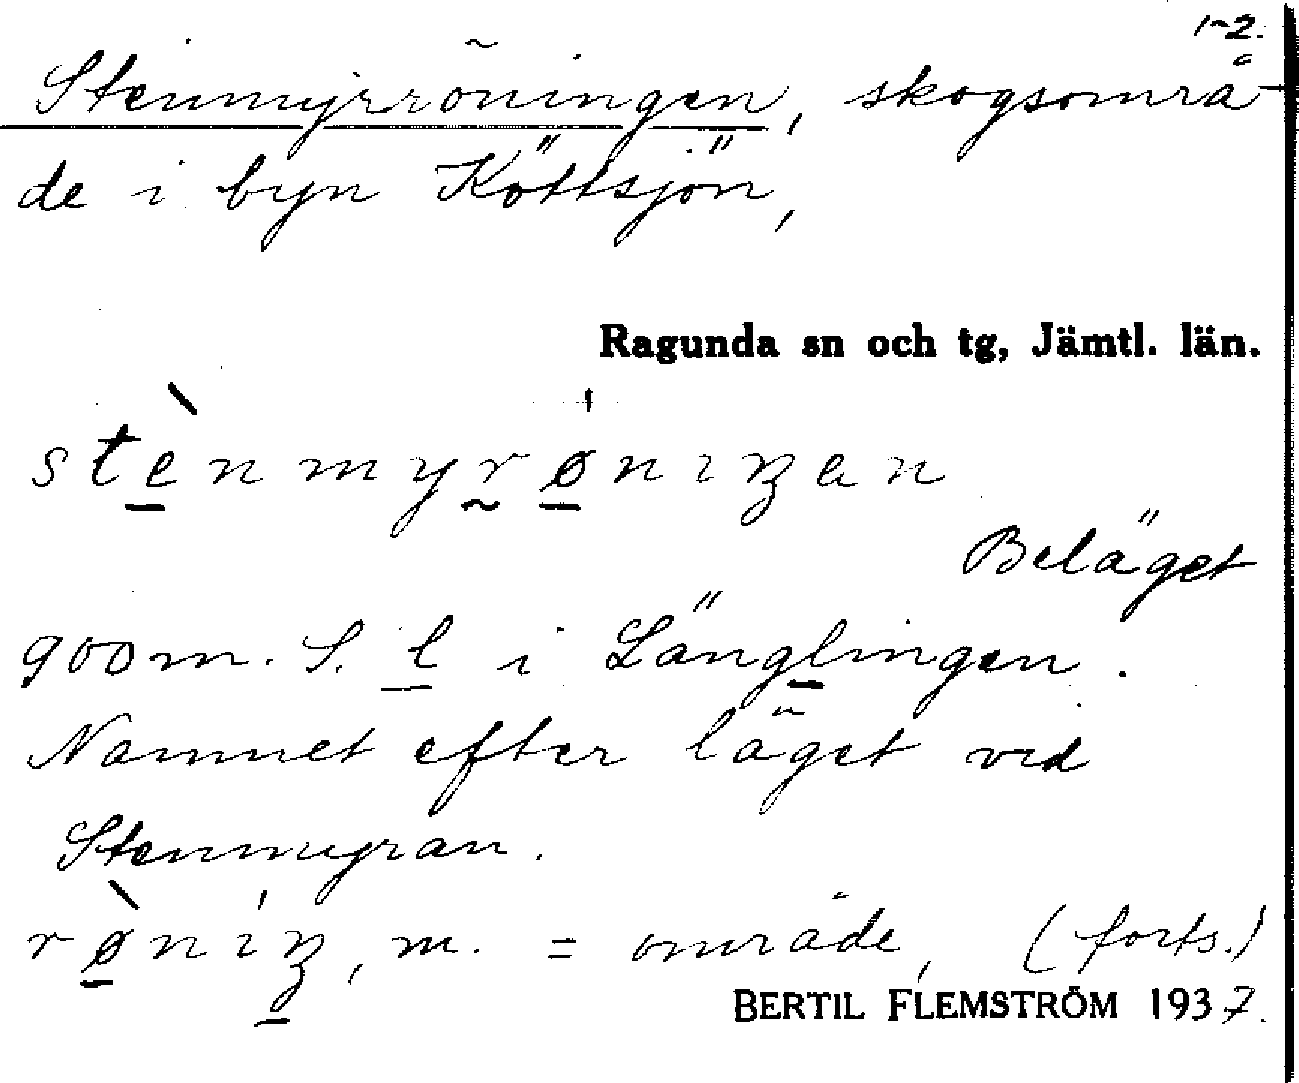 1-2.
Stenmyrröningen, skogsområ-
de i byn Köttsjön,
Ragunda sn och tg, Jämtl. län.
stènmyrøniŋen
Beläget
900 m. S. l i Länglingen.
Namnet efter läget vid
Stenmyran.
rø̀níŋ, m. = område, (forts.)
BERTIL FLEMSTRÖM 1937.